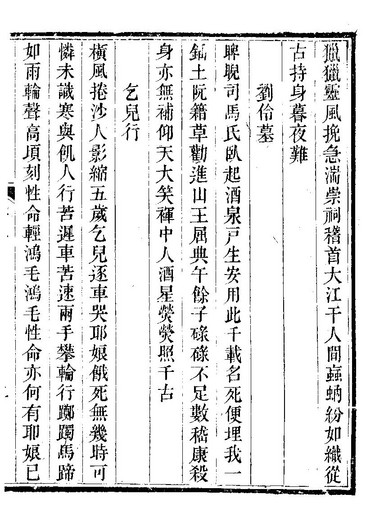 獵獵靈風挽急湍崇祠稽首大江干人間蝱蚋紛如織從
古持身暮夜難
劉伶墓
睥睨司馬氏臥起酒泉戸生安用此千載名死便埋我一
鍤土阮籍草勸進山王屈典午餘子碌碌不足數嵇康殺
身亦無補仰天大笑褌中人酒星熒熒照千古
乞兒行
橫風捲沙人影縮五歲乞兒逐車哭耶娘餓死無幾時可
憐未識寒與飢人行苦遲車苦速兩手攀輪行躑躅馬蹄
如雨輪聲高頃刻性命輕鴻毛鴻毛性命亦何有耶娘已